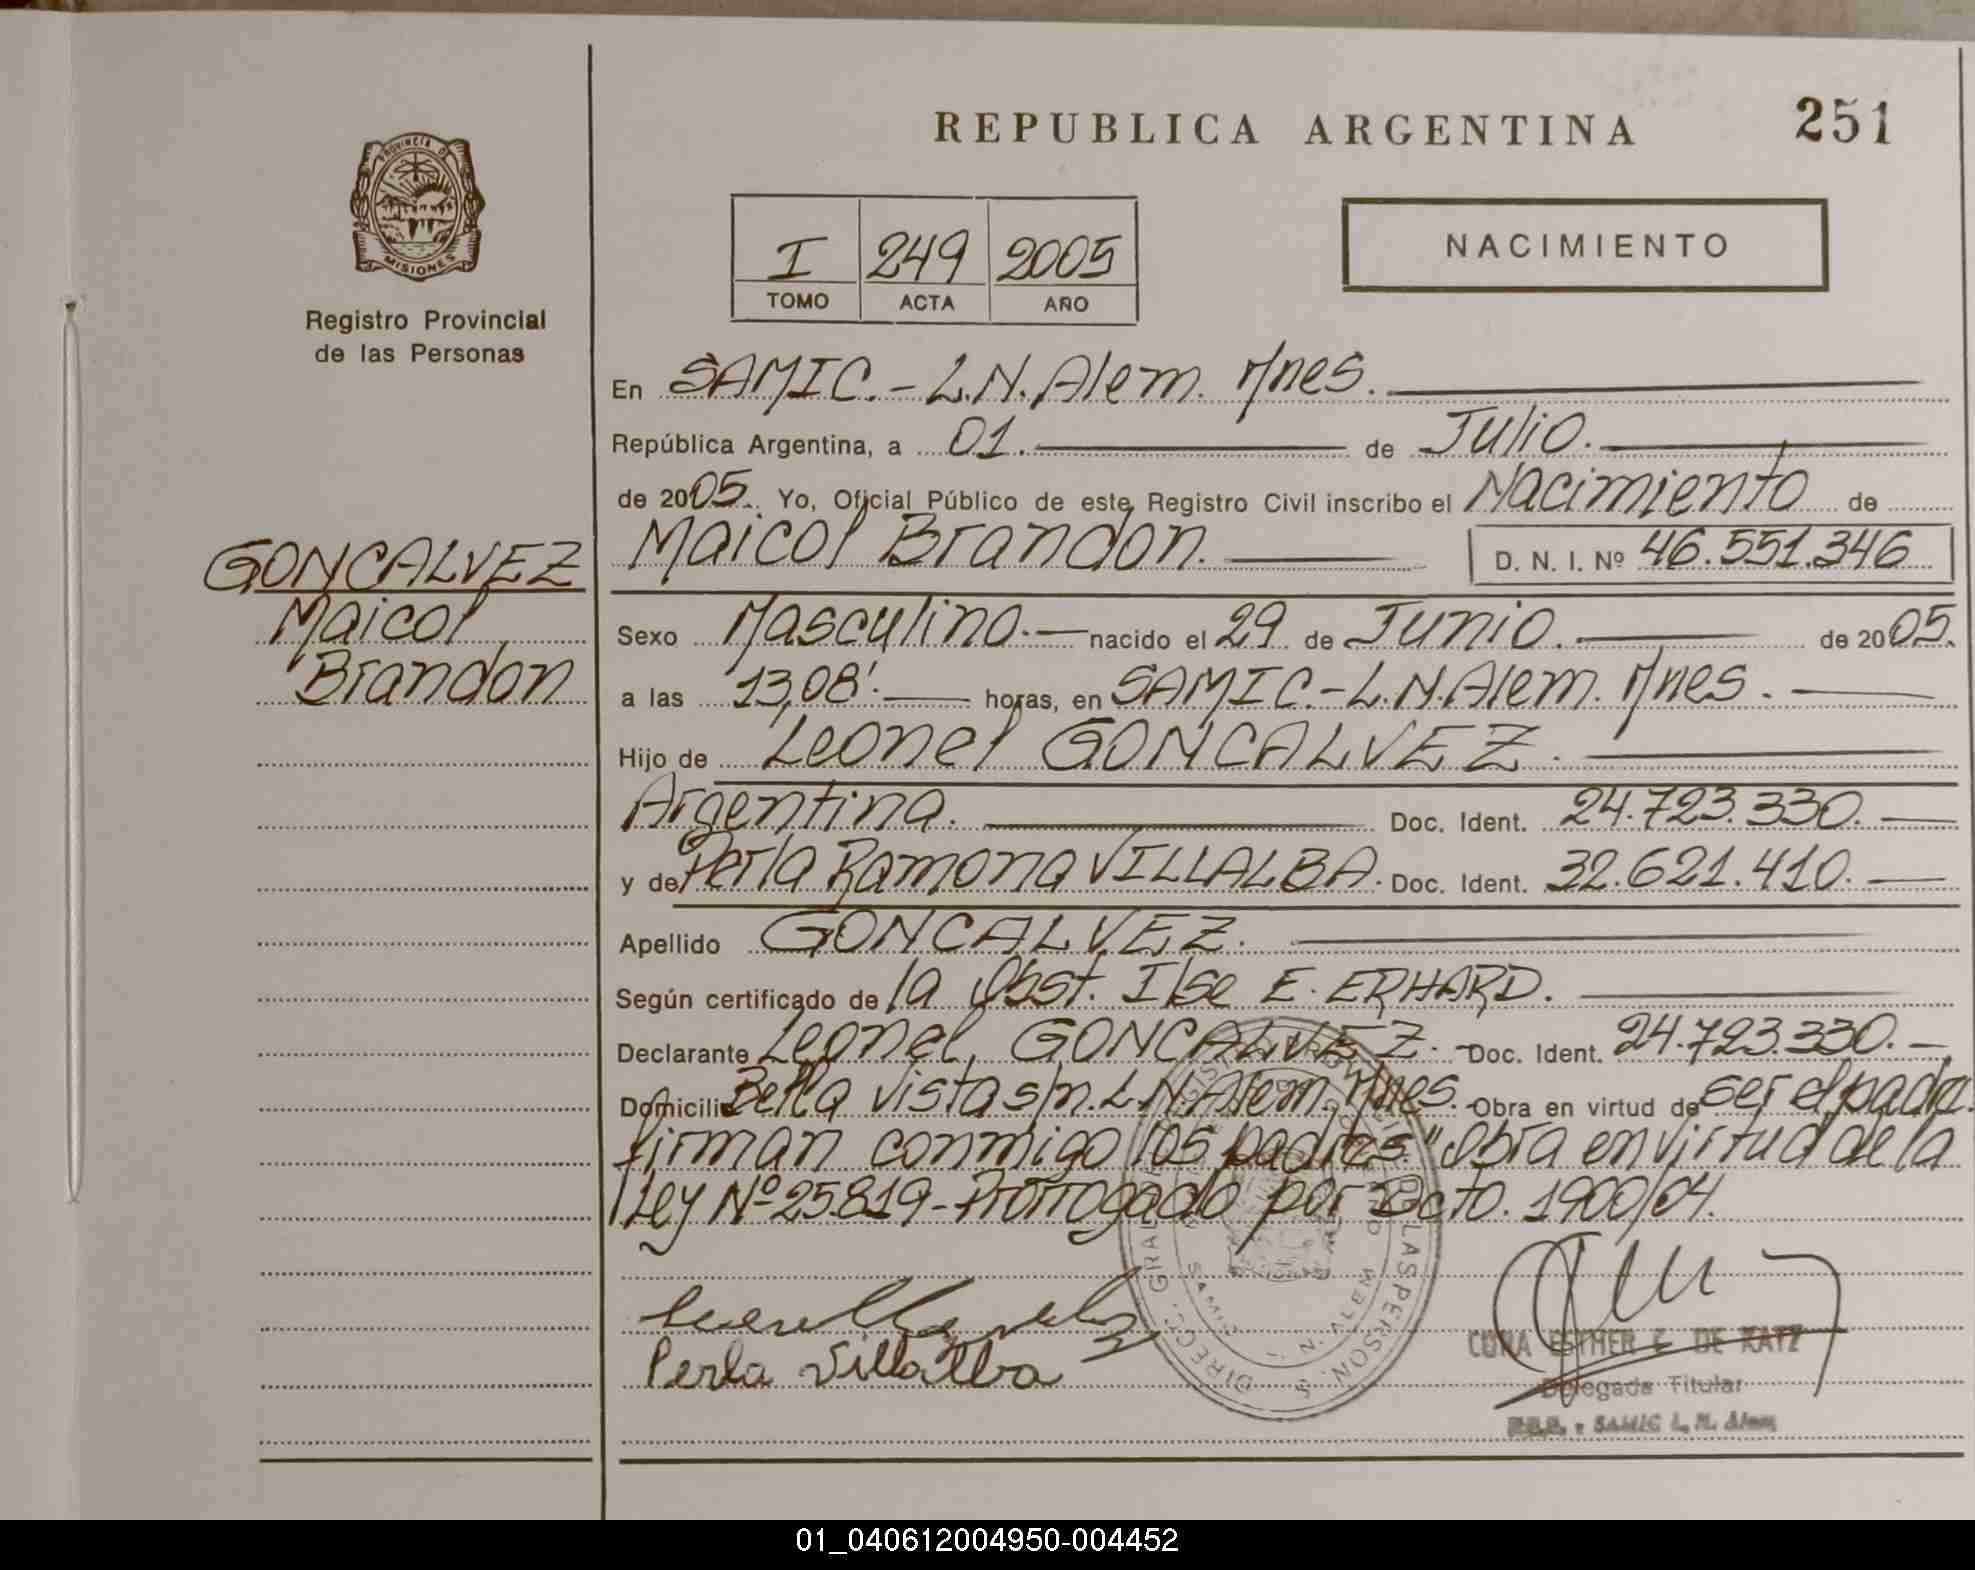 REPUBLICA ARGENTINA 251
PROVINCIA DE
MISIONES
Registro Provincial
de las Personas
I 249 2005
TOMO ACTA AÑO
NACIMIENTO
En SAMIC.- L.N. Alem. Mnes.
República Argentina, a 01. de Julio.
de 2005. Yo, Oficial Público de este Registro Civil inscribo el Nacimiento de
Maicol Brandon. D. N. I. Nº 46.551.346
GONCALVEZ
Maicol
Brandon
Sexo Masculino. nacido el 29 de Junio. de 2005.
a las 13,08'. horas, en SAMIC.-L.N.Alem. Mnes.
Hijo de Leonel GONCALVEZ.
Argentina. Doc. Ident. 24.723.330.
y de Perla Ramona VILLALBA. Doc. Ident. 32.621.410.
Apellido GONCALVEZ.
Según certificado de la Obst. Ilse E. ERHARD.
Declarante Leonel GONCALVEZ. Doc. Ident. 24.723.330.
Domicilio Bella Vista s/n. L.N. Alem. Mnes. Obra en virtud de ser el padre.
firman conmigo los padres." Obra en virtud de la
Ley Nº 25.819-Prorrogado por Dcto. 1900/04.
Perla Villalba
DIRECC. GRAL. LAS PERSONAS
SAMIC L. N. ALEM
CORA ESTHER E. DE KATZ
Delegada Titular
SAMIC L. N. Alem
01_040612004950-004452